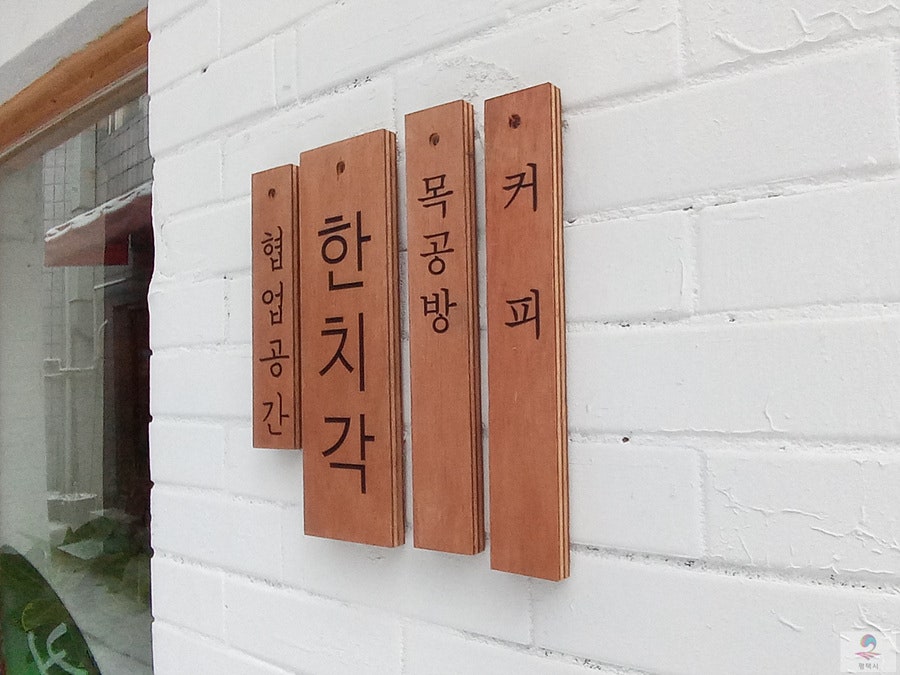 협업공간
한치각
목공방
커피
평택시